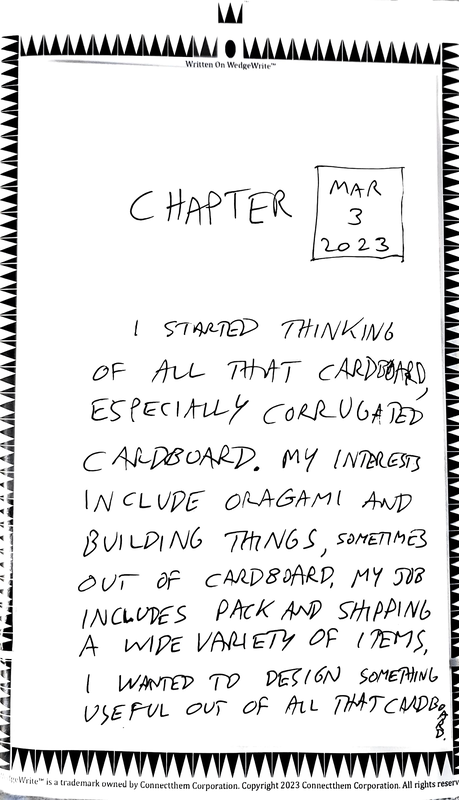 Written On WedgeWrite™
CHAPTER
MAR
3
2023
I STARTED THINKING
OF ALL THAT CARDBOARD,
ESPECIALLY CORRUGATED
CARDBOARD. MY INTERESTS
INCLUDE ORAGAMI AND
BUILDING THINGS, SOMETIMES
OUT OF CARDBOARD. MY JOB
INCLUDES PACK AND SHIPPING
A WIDE VARIETY OF ITEMS,
I WANTED TO DESIGN SOMETHING
USEFUL OUT OF ALL THAT CARDBOARD.
geWrite™ is a trademark owned by Connectthem Corporation. Copyright 2023 Connectthem Corporation. All rights reserv